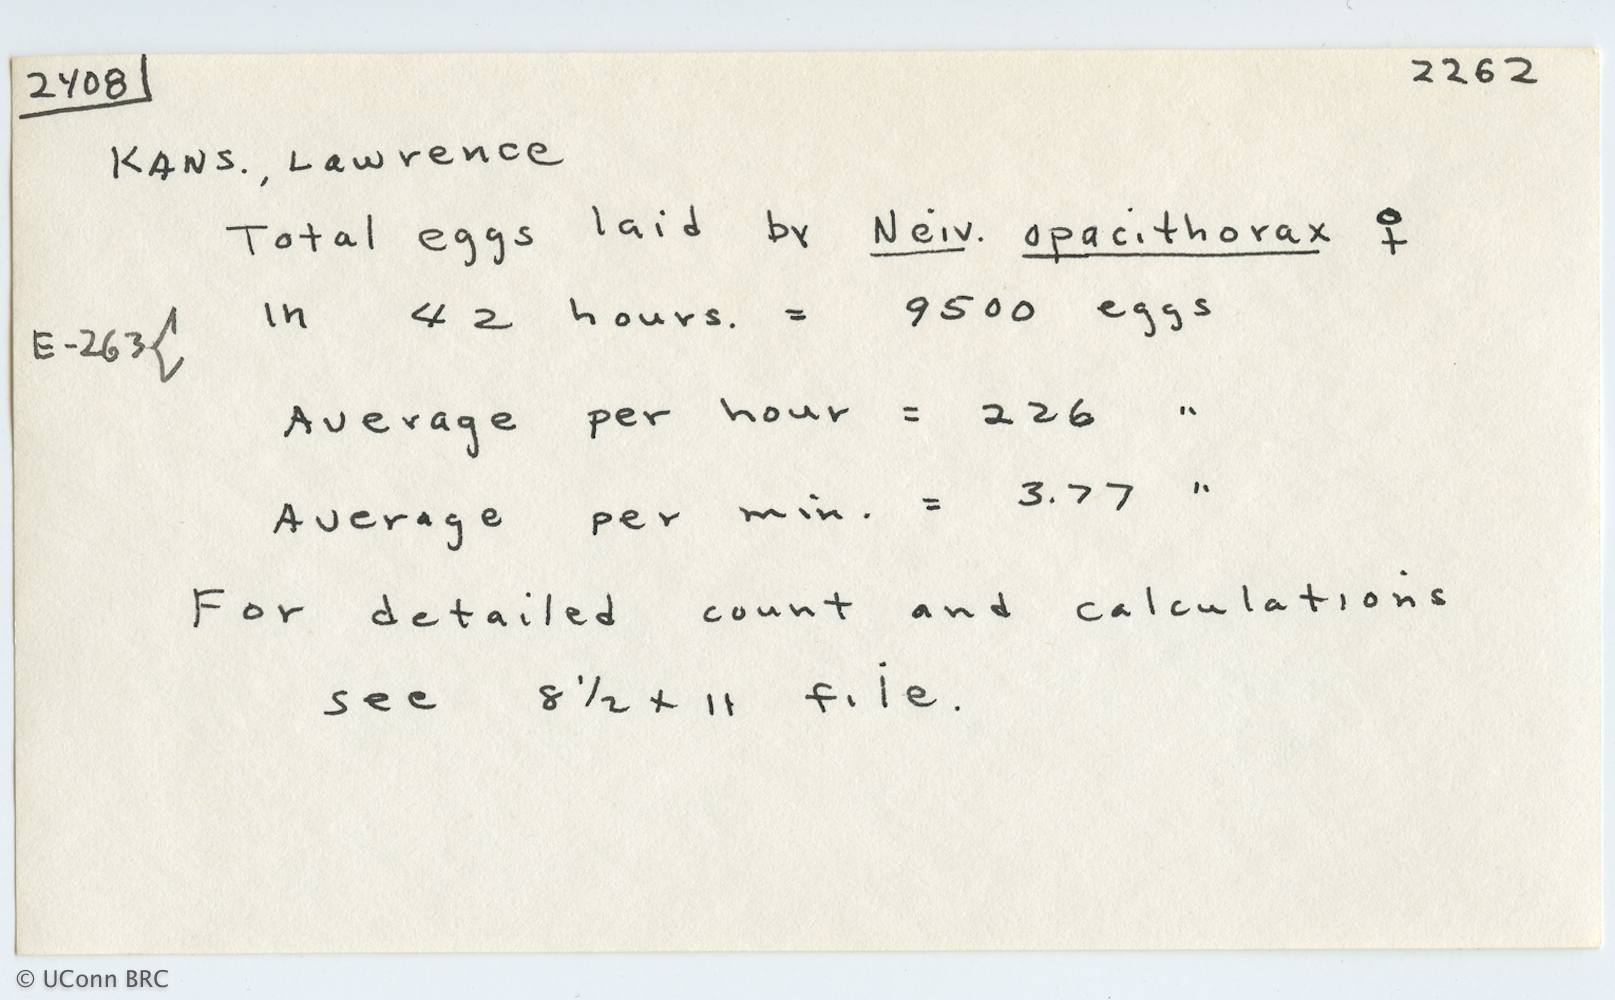 2408 2262
KANS., Lawrence
Total eggs laid by Neiv. opacithorax ♀
in 42 hours. = 9500 eggs
E-263{
Average per hour = 226 "
Average per min. = 3.77 "
For detailed count and calculations
see 8 1/2 x 11 file.
© UConn BRC